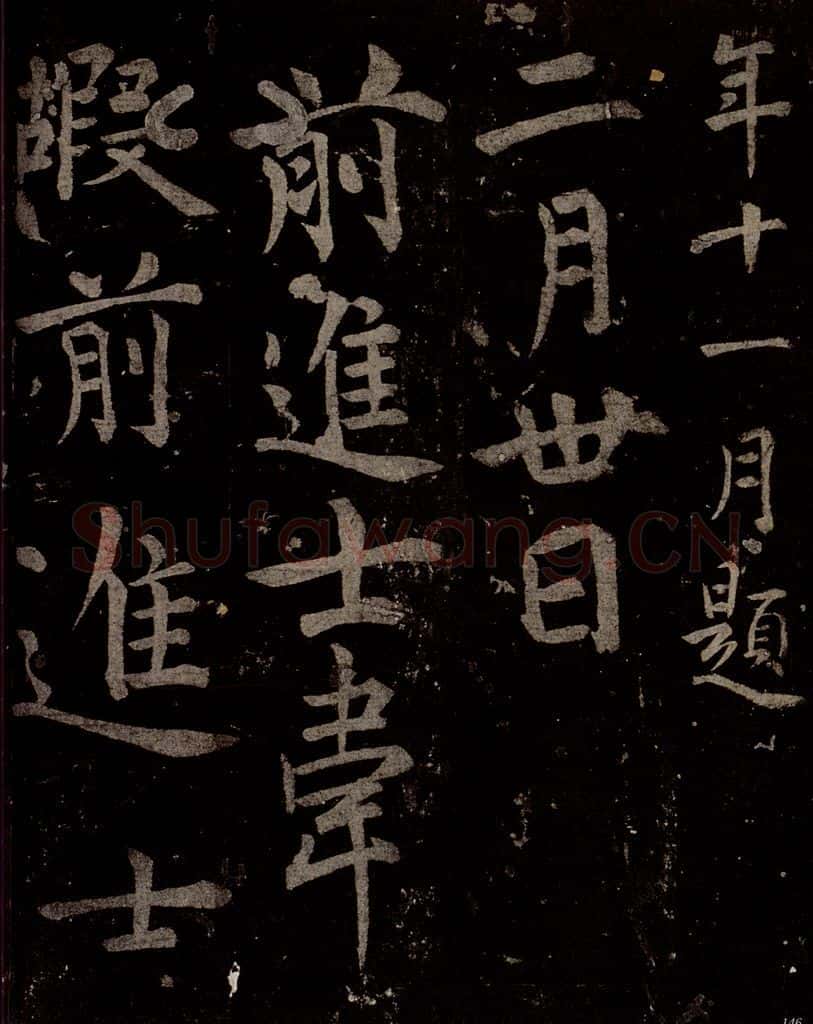 年十一月題
二月丗日
前進士韋
嘏前進士
Shufawang.CN
146